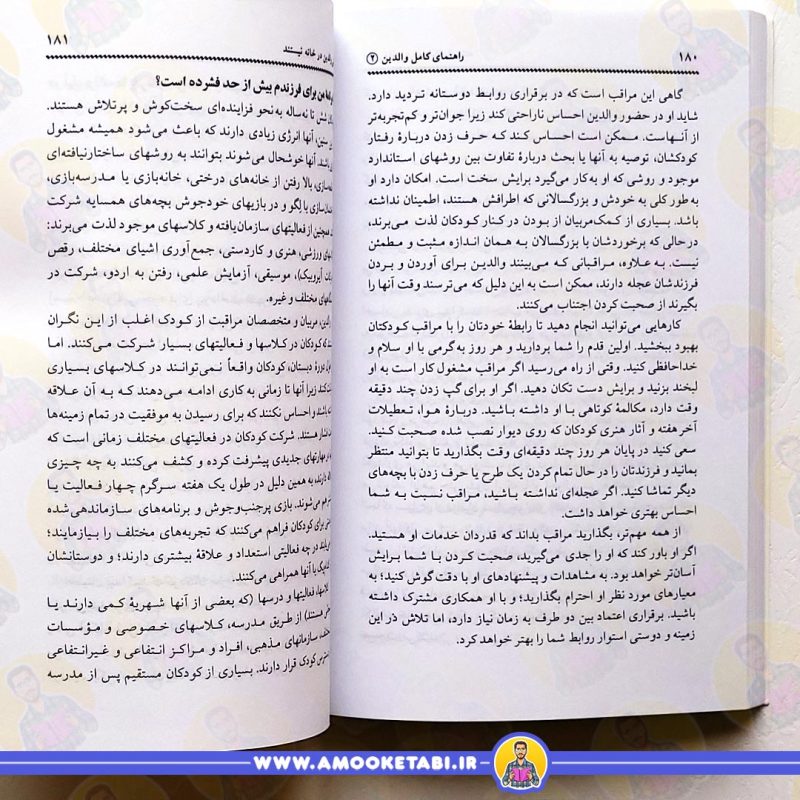 ۱۸۰ راهنمای کامل والدین (۲)
گاهی این مراقب است که در برقراری روابط دوستانه تردید دارد.
شاید او در حضور والدین احساس ناراحتی کند زیرا جوان‌تر و کم‌تجربه‌تر
از آنهاست. ممکن است احساس کند که حرف زدن دربارهٔ رفتار
کودکشان، توصیه به آنها یا بحث دربارهٔ تفاوت بین روشهای استاندارد
موجود و روشی که او به‌کار می‌گیرد برایش سخت است. امکان دارد او
به‌طور کلی به خودش و بزرگسالانی که اطرافش هستند، اطمینان نداشته
باشد. بسیاری از کمک‌مربیان از بودن در کنار کودکان لذت می‌برند،
درحالی که برخوردشان با بزرگسالان به همان اندازه مثبت و مطمئن
نیست. به علاوه، مراقبانی که می‌بینند والدین برای آوردن و بردن
فرزندشان عجله دارند، ممکن است به این دلیل که می‌ترسند وقت آنها را
بگیرند از صحبت کردن اجتناب می‌کنند.
کارهایی می‌توانید انجام دهید تا رابطهٔ خودتان را با مراقب کودکتان
بهبود ببخشید. اولین قدم را شما بردارید و هر روز به‌گرمی با او سلام و
خداحافظی کنید. وقتی از راه می‌رسید اگر مراقب مشغول کار است به او
لبخند بزنید و برایش دست تکان دهید. اگر او برای گپ زدن چند دقیقه
وقت دارد، مکالمهٔ کوتاهی با او داشته باشید. دربارهٔ هوا، تعطیلات
آخر هفته و آثار هنری کودکان که روی دیوار نصب شده صحبت کنید.
سعی کنید در پایان هر روز چند دقیقه‌ای وقت بگذارید تا بتوانید منتظر
بمانید و فرزندتان را در حال تمام کردن یک طرح یا حرف زدن با بچه‌های
دیگر تماشا کنید. اگر عجله‌ای نداشته باشید، مراقب نسبت به شما
احساس بهتری خواهد داشت.
از همه مهم‌تر، بگذارید مراقب بداند که قدردان خدمات او هستید.
اگر او باور کند که او را جدی می‌گیرید، صحبت کردن با شما برایش
آسان‌تر خواهد بود. به مشاهدات و پیشنهادهای او با دقت گوش کنید؛ به
معیارهای مورد نظر او احترام بگذارید؛ و با او همکاری مشترک داشته
باشید. برقراری اعتماد بین دو طرف به زمان نیاز دارد، اما تلاش در این
زمینه و دوستی استوار روابط شما را بهتر خواهد کرد.
والدین در خانه نیستند ۱۸۱
من برای فرزندم بیش از حد فشرده است؟
شش تا نه‌ساله به‌نحو فزاینده‌ای سخت‌کوش و پرتلاش هستند.
سنین، آنها انرژی زیادی دارند که باعث می‌شود همیشه مشغول
آنها خوشحال می‌شوند بتوانند به روشهای ساختارنیافته‌ای
بالا رفتن از خانه‌های درختی، خانه‌بازی یا مدرسه‌بازی،
با لگو و در بازیهای خودجوش بچه‌های همسایه شرکت
همچنین از فعالیتهای سازمان‌یافته و کلاسهای موجود لذت می‌برند:
ورزشی، هنری و کاردستی، جمع‌آوری اشیای مختلف، رقص
موسیقی، آزمایش علمی، رفتن به اردو، شرکت در
مختلف و غیره.
مربیان و متخصصان مراقبت از کودک اغلب از این نگران
که کودکان در کلاسها و فعالیتهای بسیار شرکت می‌کنند. اما
دورهٔ دبستان، کودکان واقعاً نمی‌توانند در کلاسهای بسیاری
کنند زیرا آنها تا زمانی به کاری ادامه می‌دهند که به آن علاقه
باشند و احساس نکنند که برای رسیدن به موفقیت در تمام زمینه‌ها
فشار هستند. شرکت کودکان در فعالیتهای مختلف زمانی است که
مهارتهای جدیدی پیشرفت کرده و کشف می‌کنند به چه چیزی
دارند، به همین دلیل در طول یک هفته سرگرم چهار فعالیت یا
هم می‌شوند. بازی پرجنب‌وجوش و برنامه‌های سازماندهی‌شده
برای کودکان فراهم می‌کنند که تجربه‌های مختلف را بیازمایند؛
در چه فعالیتی استعداد و علاقهٔ بیشتری دارند؛ و دوستانشان
با آنها همراهی می‌کنند.
فعالیتها و درسها (که بعضی از آنها شهریهٔ کمی دارند یا
هستند) از طریق مدرسه، کلاسهای خصوصی و مؤسسات
سازمانهای مذهبی، افراد و مراکز انتفاعی و غیرانتفاعی
کودک قرار دارند. بسیاری از کودکان مستقیم پس از مدرسه
WWW.AMOOKETABI.IR